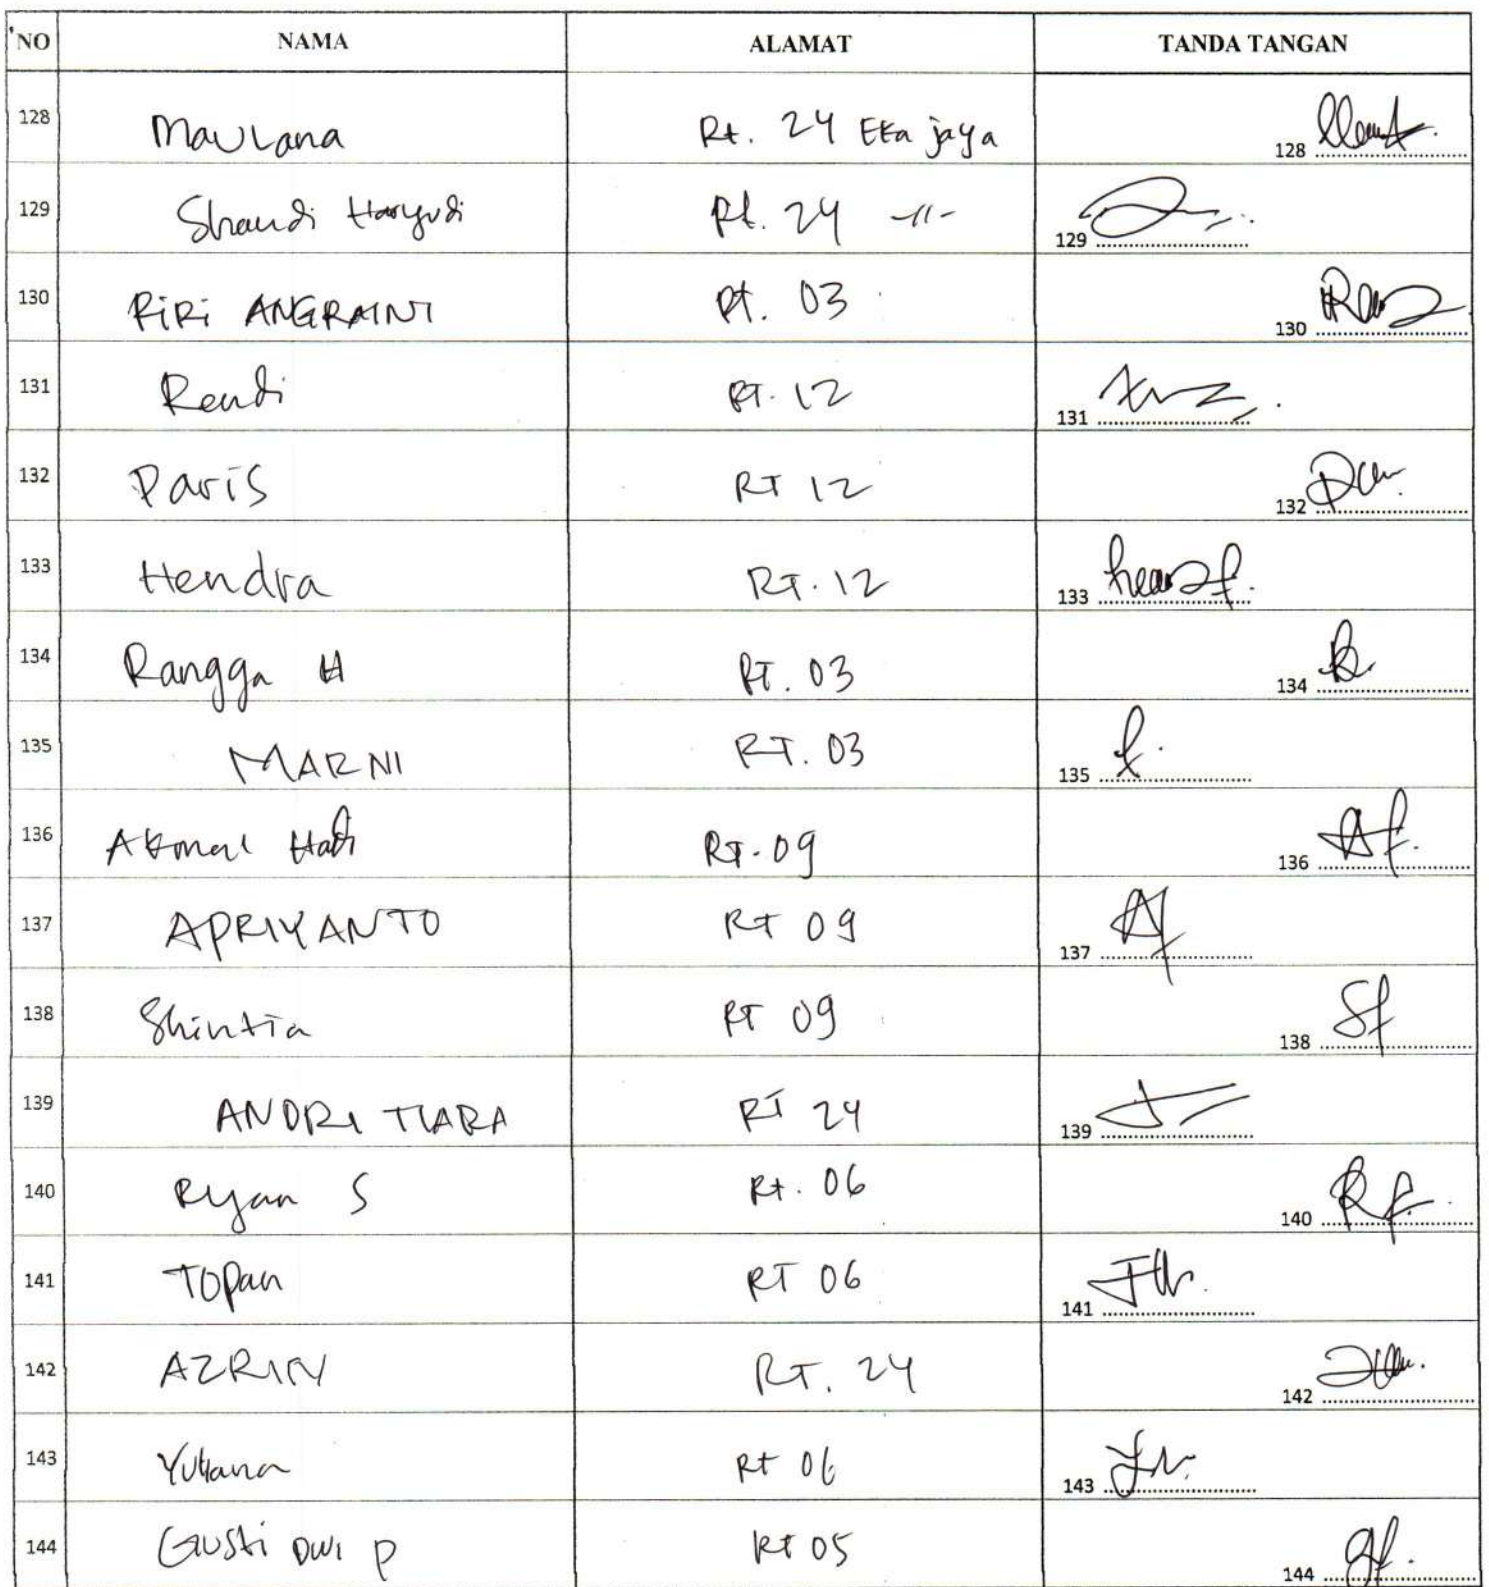 NO NAMA ALAMAT TANDA TANGAN
128 Maulana Rt. 24 Eka jaya 128
129 Shandi Haryudi Rt. 24 -11- 129
130 RiRi ANGRAINI Rt. 03 130
131 Rendi RT. 12 131
132 Paris RT 12 132
133 Hendra RT. 12 133
134 Rangga H RT. 03 134
135 MARNI RT. 03 135
136 Akmal Hadi RT. 09 136
137 APRIYANTO RT 09 137
138 Shintia RT 09 138
139 ANDRI TIARA RT 24 139
140 Ryan S Rt. 06 140
141 Topan RT 06 141
142 AZRIN RT. 24 142
143 Yuliana Rt 06 143
144 Gusti Dwi P Rt 05 144